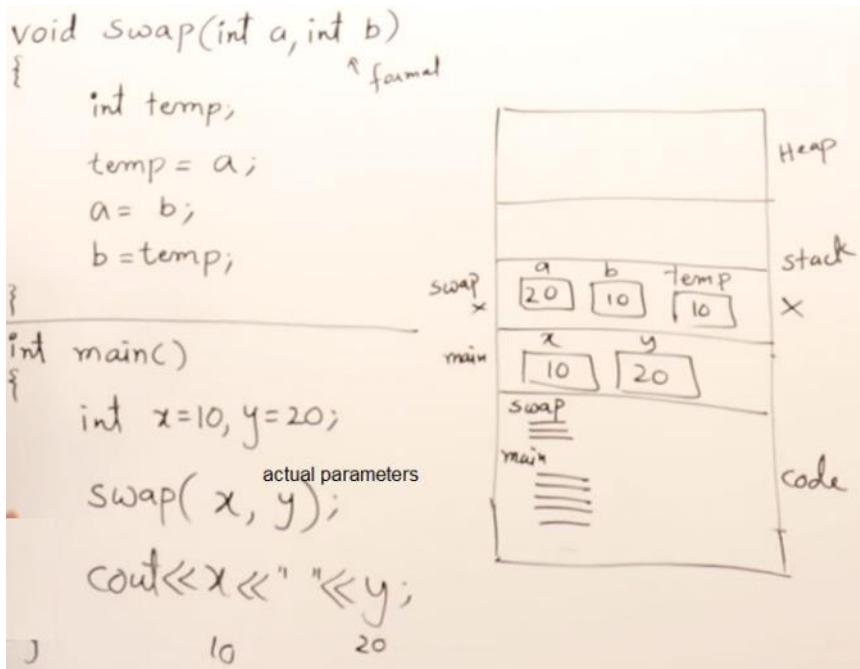 void swap(int a, int b)
{
formal
int temp;
temp = a;
a = b;
b = temp;
}
int main()
{
int x=10, y=20;
actual parameters
swap( x, y);
cout<<x<<" "<<y;
}
10 20
Heap
stack
swap
x
a b temp
20 10 10
X
main
x y
10 20
swap
main
code